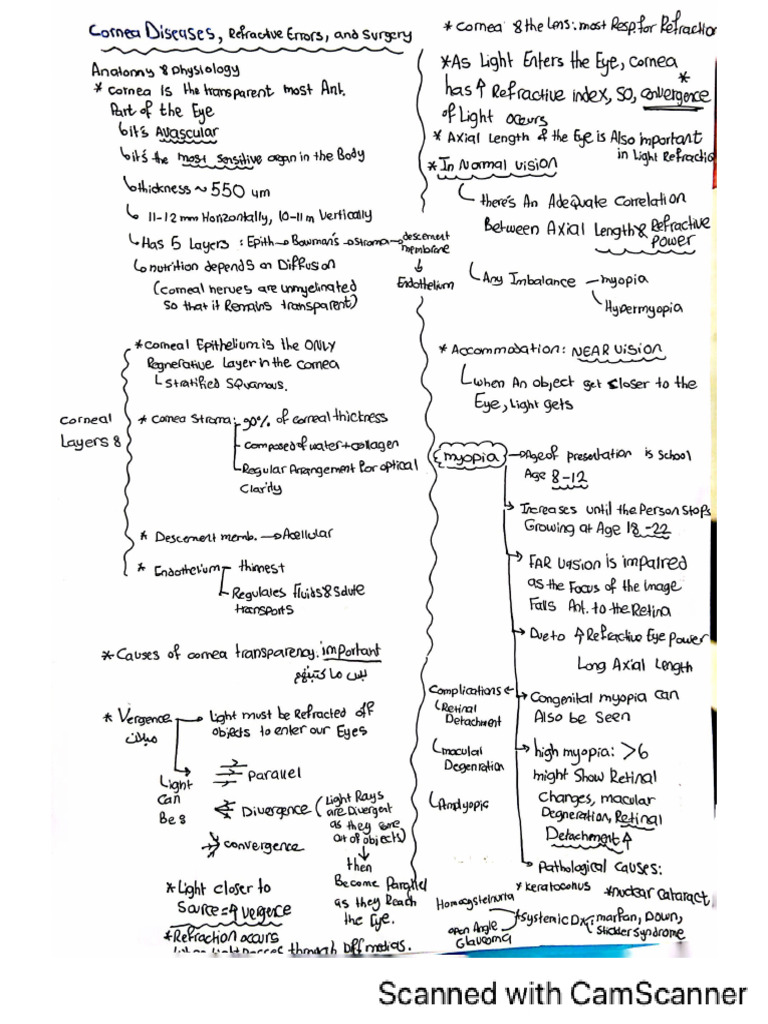 Cornea Diseases, Refractive Errors, and Surgery
Anatomy & Physiology
* Cornea Is the transparent most Ant.
Part of the Eye
↳ it's Avascular
↳ it's the most sensitive organ in the Body
↳ thickness ~ 550 um
↳ 11-12 mm Horizontally, 10-11 m Vertically
↳ Has 5 Layers : Epith → Bowman's → Stroma → descement membrane
↓
Endothelium
↳ nutrition depends on Diffusion
(corneal nerves are unmyelinated
so that it Remains transparent)
Corneal
Layers 8
* Corneal Epithelium is the ONLY
Regnerative Layer in the Cornea
↳ Stratified Squamous.
* Cornea Stroma: 90% of corneal thickness
composed of water + collagen
Regular Arrangement for optical
Clarity
* Descement memb. → Acellular
* Endothelium thinnest
Regulates Fluids & Solute
transports
* Causes of cornea transparency. important
بس ما كتبتهم
* Vergence → Light must be Refracted off
objects to enter our Eyes
Light
Can
Be 8
Parallel
Divergence (Light Rays
are Divergent
as they come
out of objects)
↓
then
Become Parallel
as they Reach
the Eye.
convergence
* Light closer to
Source = ↑ vergence
* Refraction occurs
through Diff medias.
* Cornea & the Lens: most Resp. for Refraction
* As Light Enters the Eye, Cornea
has ↑ Refractive index, So, convergence *
of Light occurs
* Axial Length of the Eye is Also important
in Light Refractio
* In Normal vision
↳ there's An Adequate Correlation
Between Axial Length & Refractive
Power
↳ Any Imbalance — myopia
Hypermyopia
* Accommodation: NEAR Vision
↳ when An object get closer to the
Eye, Light gets
myopia → Age of presentation is School
Age 8-12
→ Increases until the Person Stops
Growing at Age 18-22
→ FAR vision is impaired
as the Focus of the Image
Falls Ant. to the Retina
→ Due to ↑ Refractive Eye power
Long Axial Length
→ Congenital myopia can
Also be Seen
Complications
↳ Retinal
Detachment
↳ macular
Degenration
→ high myopia: >6
might Show Retinal
Changes, macular
Degneration, Retinal
Detachment ↑
→ Pathological Causes:
* Keratoconus * nuclear cataract
* Systemic Dx: marfan, Down,
Stickler Syndrome
Homocysteinuria
open Angle
Glaucoma
Scanned with CamScanner